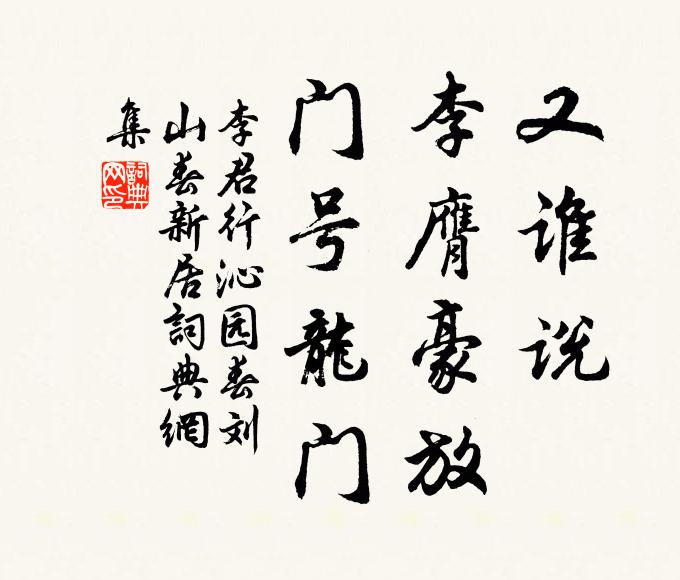 又谁说
李膺豪放
门号龍门
李君行沁园春刘
山春新居詞典網
集
詞典
网印